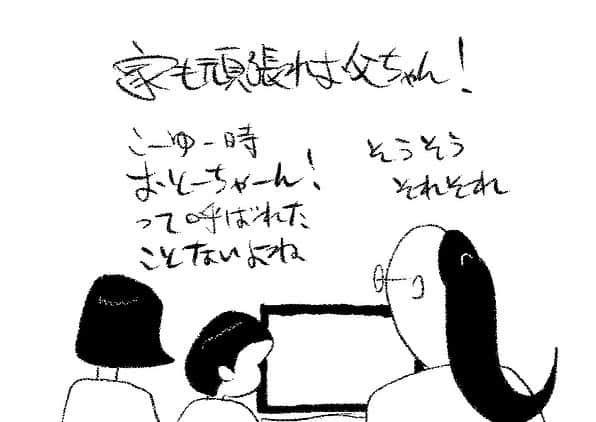 家も頑張れよ父ちゃん!
こーゆー時
おとーちゃーん!
って呼ばれた
ことないよね
そうそう
それそれ